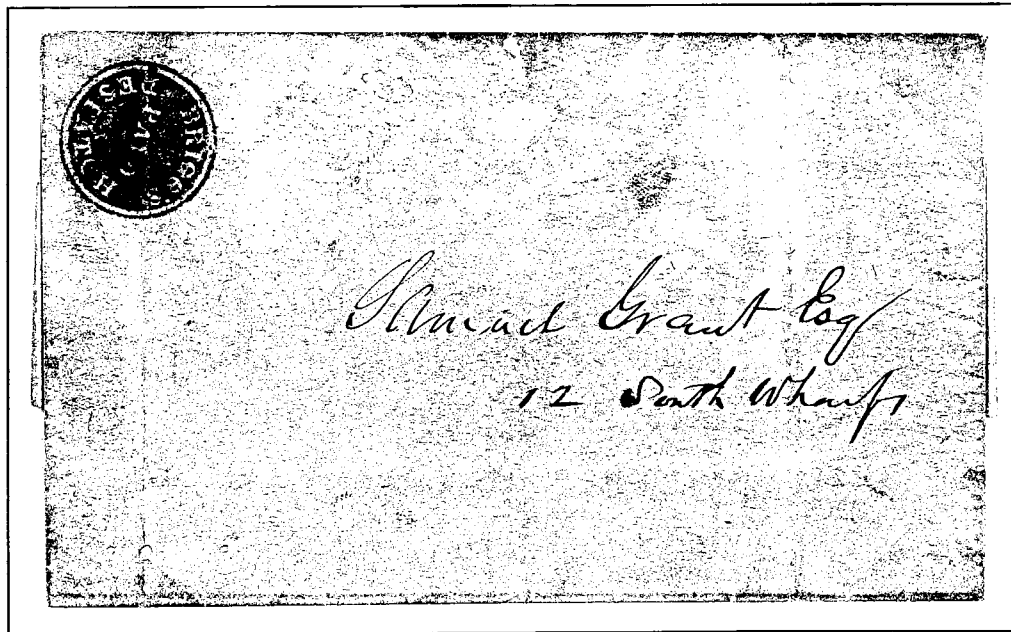 BRIGGS
DESPATCH
PAID
Samuel Grant Esq
12 South Wharfs